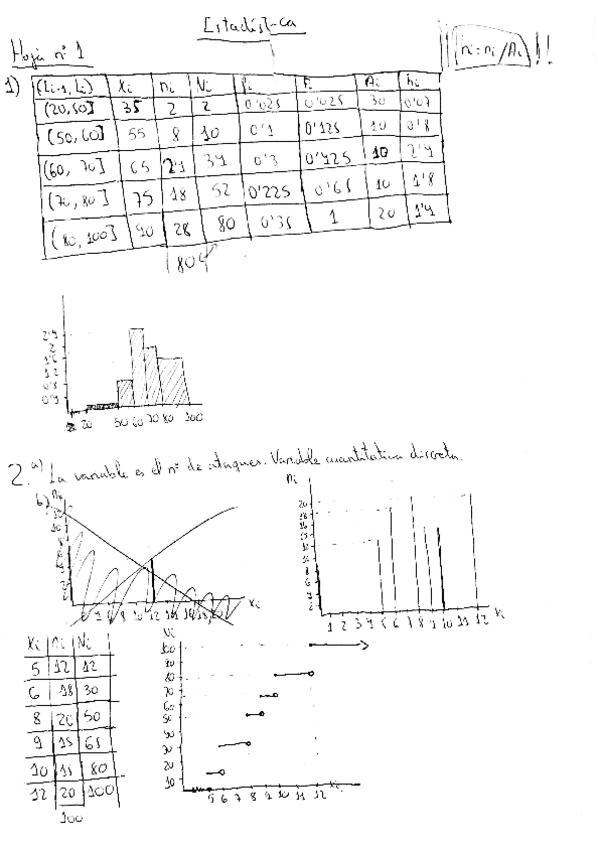 Estadística
Hoja nº 1
hi = ni/Ai !!
1) (Li-1, Li) xi ni Ni fi Fi Ai hi
(20,50] 35 2 2 0'025 0'025 30 0'07
(50,60] 55 8 10 0'1 0'125 10 0'8
(60, 70] 65 24 34 0'3 0'425 10 2'4
(70, 80] 75 18 52 0'225 0'65 10 1'8
(80, 100] 90 28 80 0'35 1 20 1'4
80
2'4
2
1'6
1'2
0'8
0'4
20 50 60 70 80 100
2. a) La variable es el nº de ataques. Variable cuantitativa discreta.
b) ni
xi
ni
20
18
16
1 2 3 4 5 6 7 8 9 10 11 12 xi
xi ni Ni
5 12 12
6 18 30
8 20 50
9 15 65
10 15 80
12 20 100
100
Ni
100
90
80
70
60
50
40
30
20
10
5 6 7 8 9 10 11 12 xi